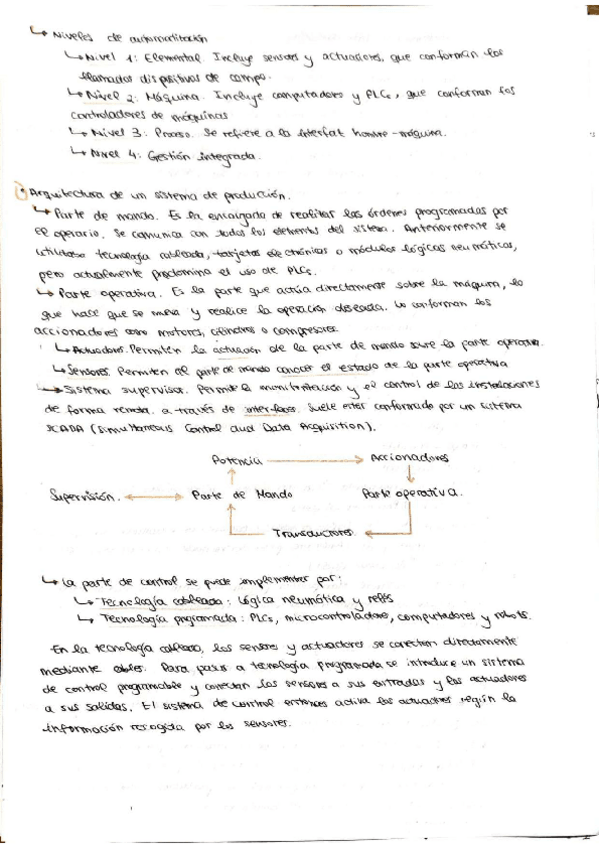 ↳ Niveles de automatización
↳ Nivel 1: Elemental. Incluye sensores y actuadores, que conforman los
llamados dispositivos de campo.
↳ Nivel 2: Máquina. Incluye computadores y PLCs, que conforman los
controladores de máquinas
↳ Nivel 3: Proceso. Se refiere a la interfaz hombre-máquina.
↳ Nivel 4: Gestión integrada.
Arquitectura de un sistema de producción.
↳ Parte de mando. Es la encargada de realizar las órdenes programadas por
el operario. Se comunica con todos los elementos del sistema. Anteriormente se
utilizaba tecnología cableada, tarjetas electrónicas o módulos lógicos neumáticos,
pero actualmente predomina el uso de PLCs.
↳ Parte operativa. Es la parte que actúa directamente sobre la máquina, lo
que hace que se mueva y realice la operación deseada. Lo conforman los
accionadores como motores, cilindros o compresores
↳ Actuadores. Permiten la actuación de la parte de mando sobre la parte operativa.
↳ Sensores. Permiten al parte de mando conocer el estado de la parte operativa
↳ Sistema supervisor. Permite la monitorización y el control de las instalaciones
de forma remota. a través de interfaces. Suele estar conformado por un sistema
SCADA (Simultaneous Control and Data Acquisition).
Potencia → Accionadores
Supervisión. ↔ Parte de Mando Parte operativa.
Transductores.
↳ La parte de control se puede implementar por:
↳ Tecnología cableada: Lógica neumática y relés
↳ Tecnología programada: PLCs, microcontroladores, computadores y robots.
En la tecnología cableada, los sensores y actuadores se conectan directamente
mediante cables. Para pasar a tecnología programada se introduce un sistema
de control programable y conectan los sensores a sus entradas y los actuadores
a sus salidas. El sistema de control entonces activa los actuadores según la
información recogida por los sensores.